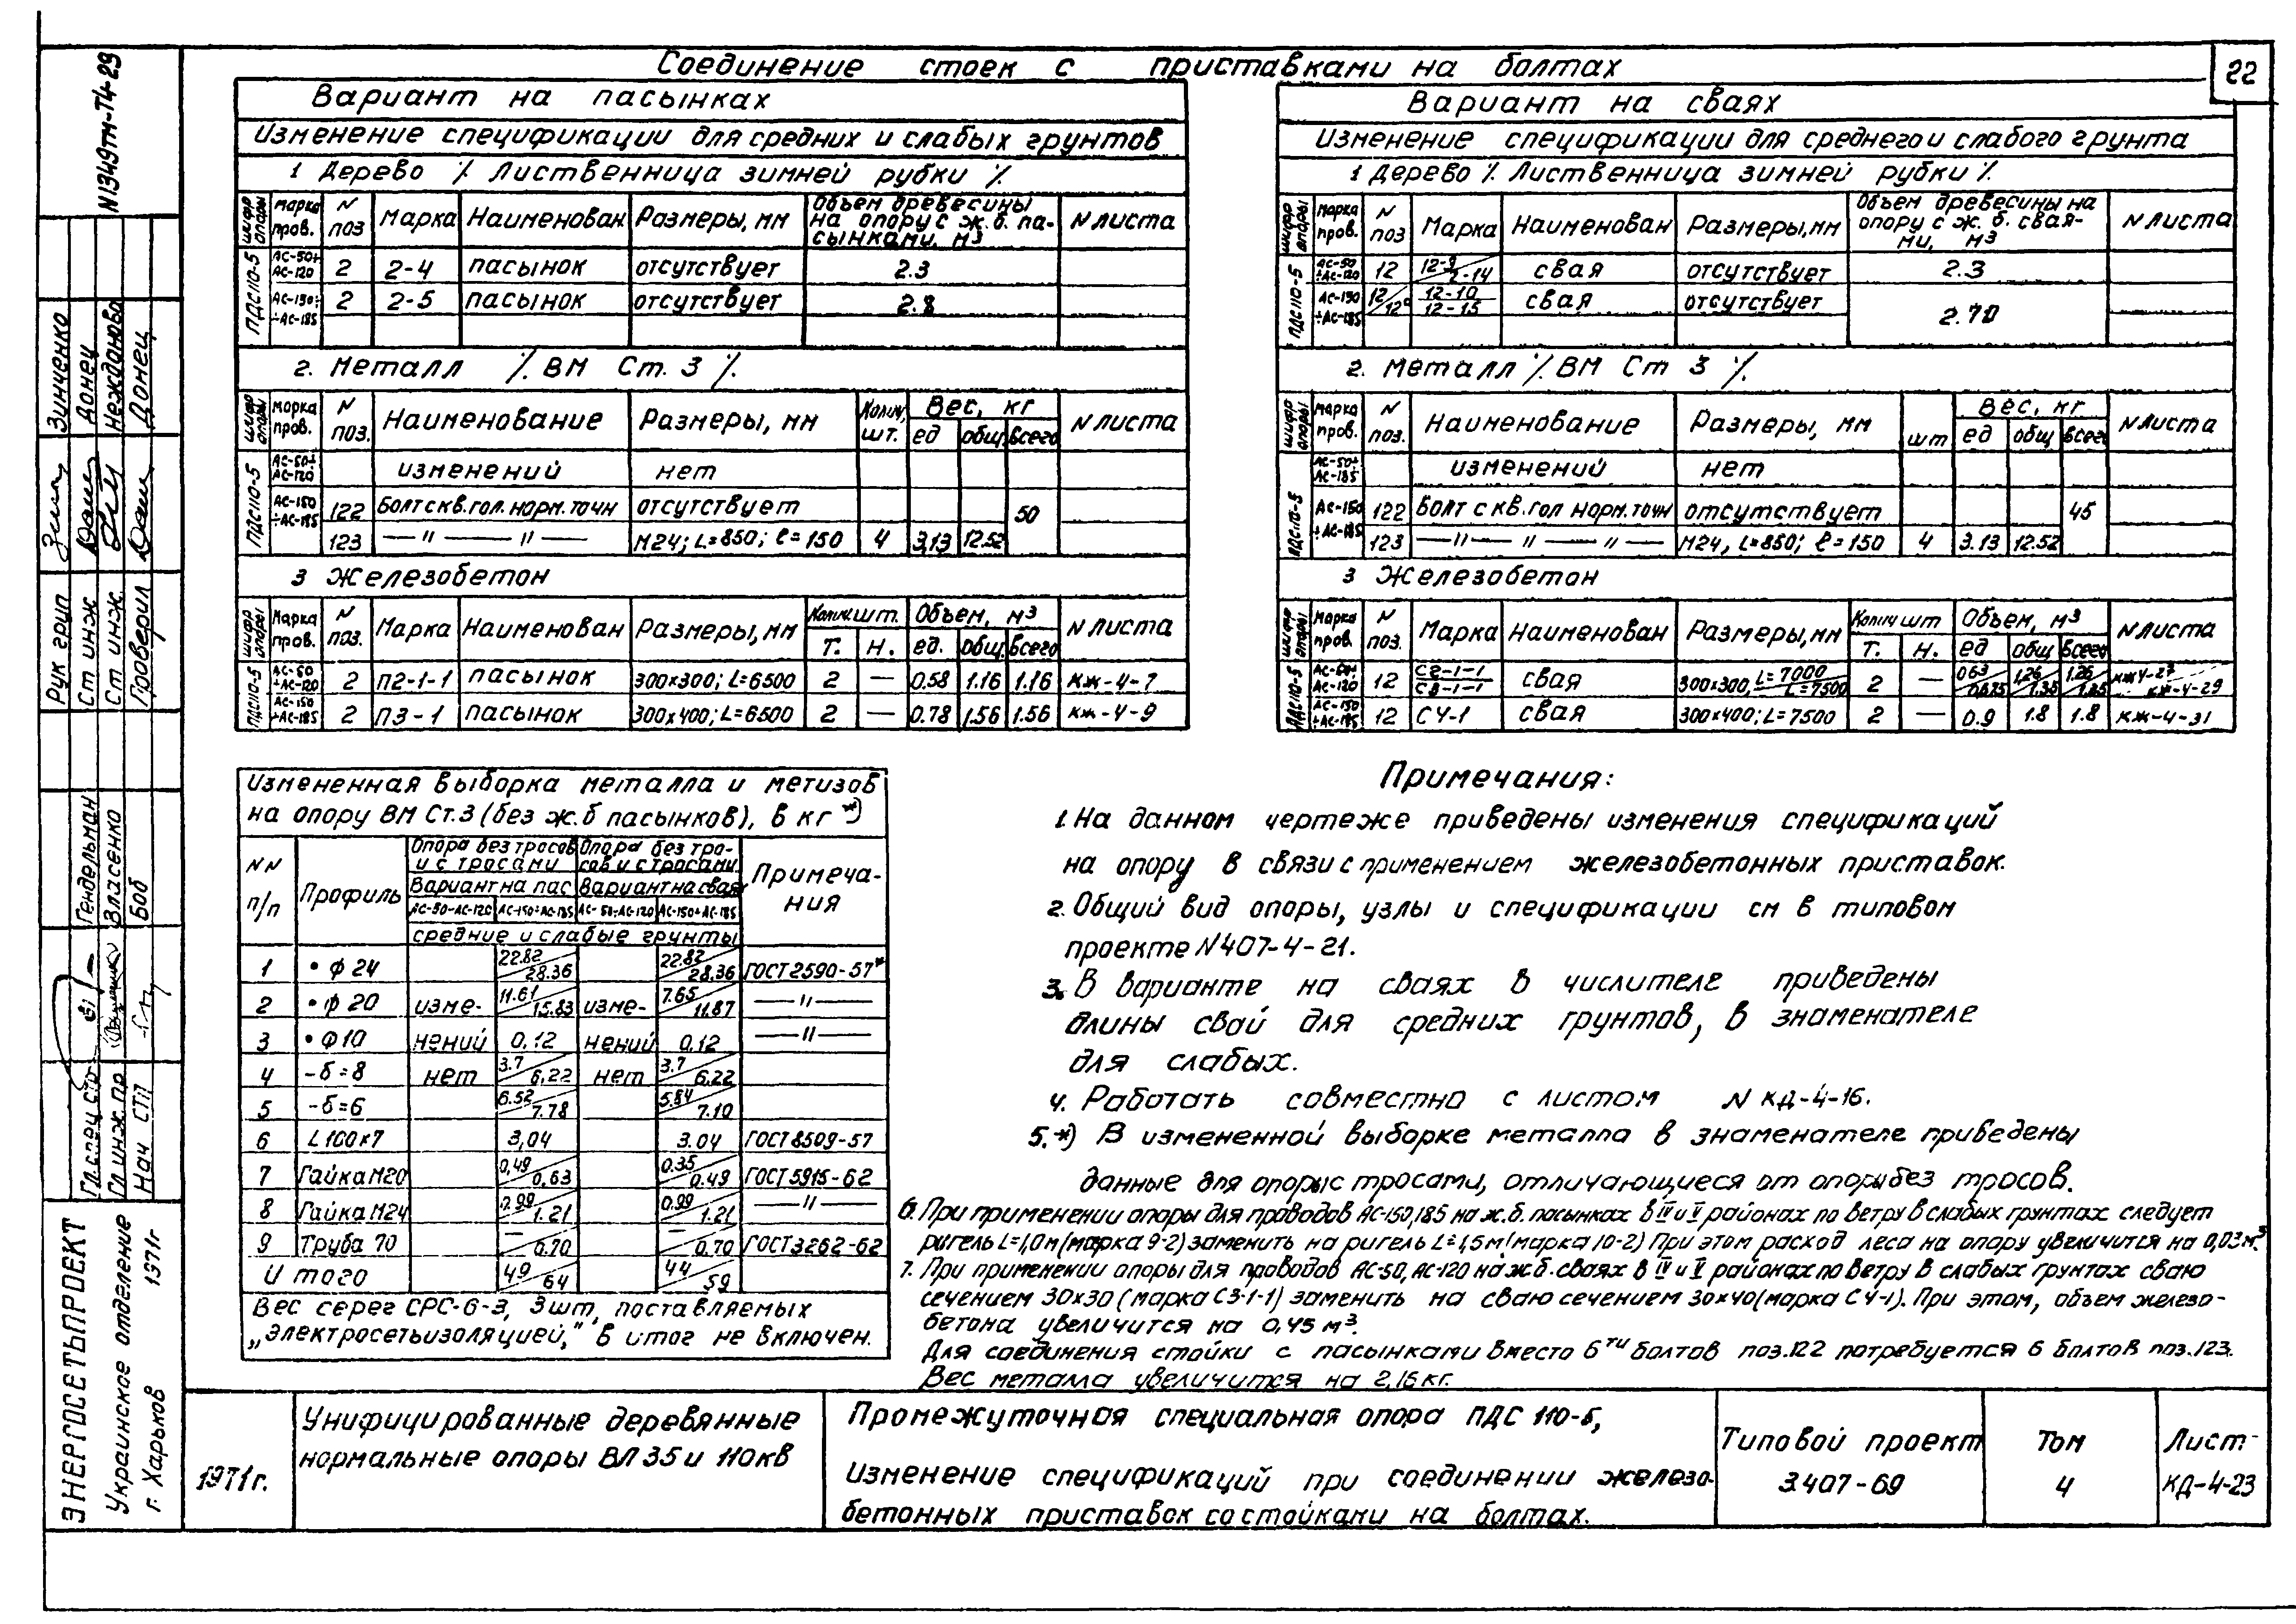 Соединение стоек с приставками на болтах
22
N1349тм-Т4-29
Вариант на пасынках
Изменение спецификации для средних и слабых грунтов
1 Дерево ٪ Лиственница зимней рубки ٪
шифр опоры | марка пров. | N поз | Марка | Наименован | Размеры, мм | Объем древесины на опору с ж.б. пасынками, м3 | N листа
ПДС110-5 | АС-50÷АС-120 | 2 | 2-4 | пасынок | отсутствует | 2.3
АС-150÷АС-185 | 2 | 2-5 | пасынок | отсутствует | 2.8
2. Металл ٪ ВМ Ст. 3 ٪
шифр опоры | марка пров. | N поз. | Наименование | Размеры, мм | Колич, шт. | Вес, кг | ед | общ | всего | N листа
ПДС110-5 | АС-50÷АС-120 | изменений нет
АС-150÷АС-185 | 122 | Болт с кв. гол. норм. точн | отсутствует | 50
123 | —〃—〃— | М24; L=850; ℓ=150 | 4 | 3,13 | 12.52
3 Железобетон
шифр опоры | Марка пров. | N поз. | Марка | Наименован | Размеры, мм | Колич. шт. | Т. | Н. | Объем, м3 | ед. | общ. | всего | N листа
ПДС110-5 | АС-50÷АС-120 | 2 | П2-1-1 | пасынок | 300×300; L=6500 | 2 | — | 0.58 | 1.16 | 1.16 | КЖ-4-7
АС-150÷АС-185 | 2 | П3-1 | пасынок | 300×400; L=6500 | 2 | — | 0.78 | 1.56 | 1.56 | КЖ-4-9
Вариант на сваях
Изменение спецификации для среднего и слабого грунта
1 Дерево ٪ Лиственница зимней рубки ٪
шифр опоры | Марка пров. | N поз | Марка | Наименован | Размеры, мм | Объем древесины на опору с ж.б. сваями, м3 | N листа
ПДС110-5 | АС-50÷АС-120 | 12 | 12-9/2-14 | свая | отсутствует | 2.3
АС-150÷АС-185 | 12/12а | 12-10/12-15 | свая | отсутствует | 2.70
2. Металл ٪ ВМ Ст 3 ٪
шифр опоры | марка пров. | N поз. | Наименование | Размеры, мм | шт | Вес, кг | ед | общ | всего | N листа
АС-50÷АС-185 | изменений нет
ПДС110-5 | АС-150÷АС-185 | 122 | Болт с кв. гол норм. точн | отсутствует | 45
123 | —〃—〃—〃— | М24, L=850; ℓ=150 | 4 | 3.13 | 12.52
3 Железобетон
шифр опоры | Марка пров. | N поз. | Марка | Наименован | Размеры, мм | Колич шт | Т. | Н. | Объем, м3 | ед | общ | всего | N листа
ПДС110-5 | АС-50÷АС-120 | 12 | С2-1-1/С3-1-1 | свая | 300×300, L=7000/L=7500 | 2 | — | 0.63/0.675 | 1.26/1.35 | 1.26/1.35 | КЖ4-27/КЖ-4-29
АС-150÷АС-185 | 12 | С4-1 | свая | 300×400; L=7500 | 2 | — | 0.9 | 1.8 | 1.8 | КЖ-4-31
Измененная выборка металла и метизов
на опору ВМ Ст.3 (без ж.б пасынков), в кг *)
NN п/п | Профиль | Опора без тросов и с тросами | Опора без тросов и с тросами | Примечания
Вариант на пас | Вариант на свая
АС-50÷АС-120 | АС-150÷АС-185 | АС-50÷АС-120 | АС-150÷АС-185
средние и слабые грунты
1 | • ф 24 | 22.82/28.36 | 22.82/28.36 | ГОСТ 2590-57*
2 | • ф 20 | изме- | 11.61/15.83 | изме- | 7.65/11.87 | —〃—
3 | • ф10 | нений | 0,12 | нений | 0.12 | —〃—
4 | -δ=8 | нет | 3.7/6.22 | нет | 3.7/6.22
5 | -δ=6 | 6.52/7.78 | 5.84/7.10
6 | L100×7 | 3,04 | 3.04 | ГОСТ 8509-57
7 | Гайка М20 | 0,49/0,63 | 0.35/0.49 | ГОСТ 5915-62
8 | Гайка М24 | 0.99/1.21 | 0.99/1.21 | —〃—
9 | Труба 70 | —/0.70 | —/0.70 | ГОСТ 3262-62
Итого | 49/64 | 44/59
Вес серег СРС-6-3, 3шт, поставляемых
„Электросетьизоляцией," в итог не включен.
Примечания:
1. На данном чертеже приведены изменения спецификаций
на опору в связи с применением железобетонных приставок.
2. Общий вид опоры, узлы и спецификации см в типовом
проекте N407-4-21.
3. В варианте на сваях в числителе приведены
длины свай для средних грунтов, в знаменателе
для слабых.
4. Работать совместно с листом N КД-4-16.
5.*) В измененной выборке металла в знаменателе приведены
данные для опоры с тросами, отличающиеся от опоры без тросов.
6. При применении опоры для проводов АС-150,185 на ж.б. пасынках в IV и V районах по ветру в слабых грунтах следует
ригель L=1,0м (марка 9-2) заменить на ригель L=1,5м (марка 10-2) При этом расход леса на опору увеличится на 0,03м3.
7. При применении опоры для проводов АС-50, АС-120 на ж.б. сваях в IV и V районах по ветру в слабых грунтах сваю
сечением 30×30 (марка С3-1-1) заменить на сваю сечением 30×40 (марка С4-1). При этом, объем железо-
бетона увеличится на 0,45 м3.
Для соединения стойки с пасынками вместо 6ти болтов поз.122 потребуется 6 болтов поз.123.
Вес металла увеличится на 2,16 кг.
Рук груп Зинченко
Ст инж Донец
Ст инж. Нежданова
Проверил Донец
Гл. спец СТО Гендельман
Гл инж. пр Власенко
Нач СТП Боб
ЭНЕРГОСЕТЬПРОЕКТ
Украинское отделение
г. Харьков 1971г
1971г.
Унифицированные деревянные
нормальные опоры ВЛ 35 и 110кв
Промежуточная специальная опора ПДС 110-5,
Изменение спецификаций при соединении железо-
бетонных приставок со стойками на болтах.
Типовой проект
3.407-69
Том
4
Лист
КД-4-23